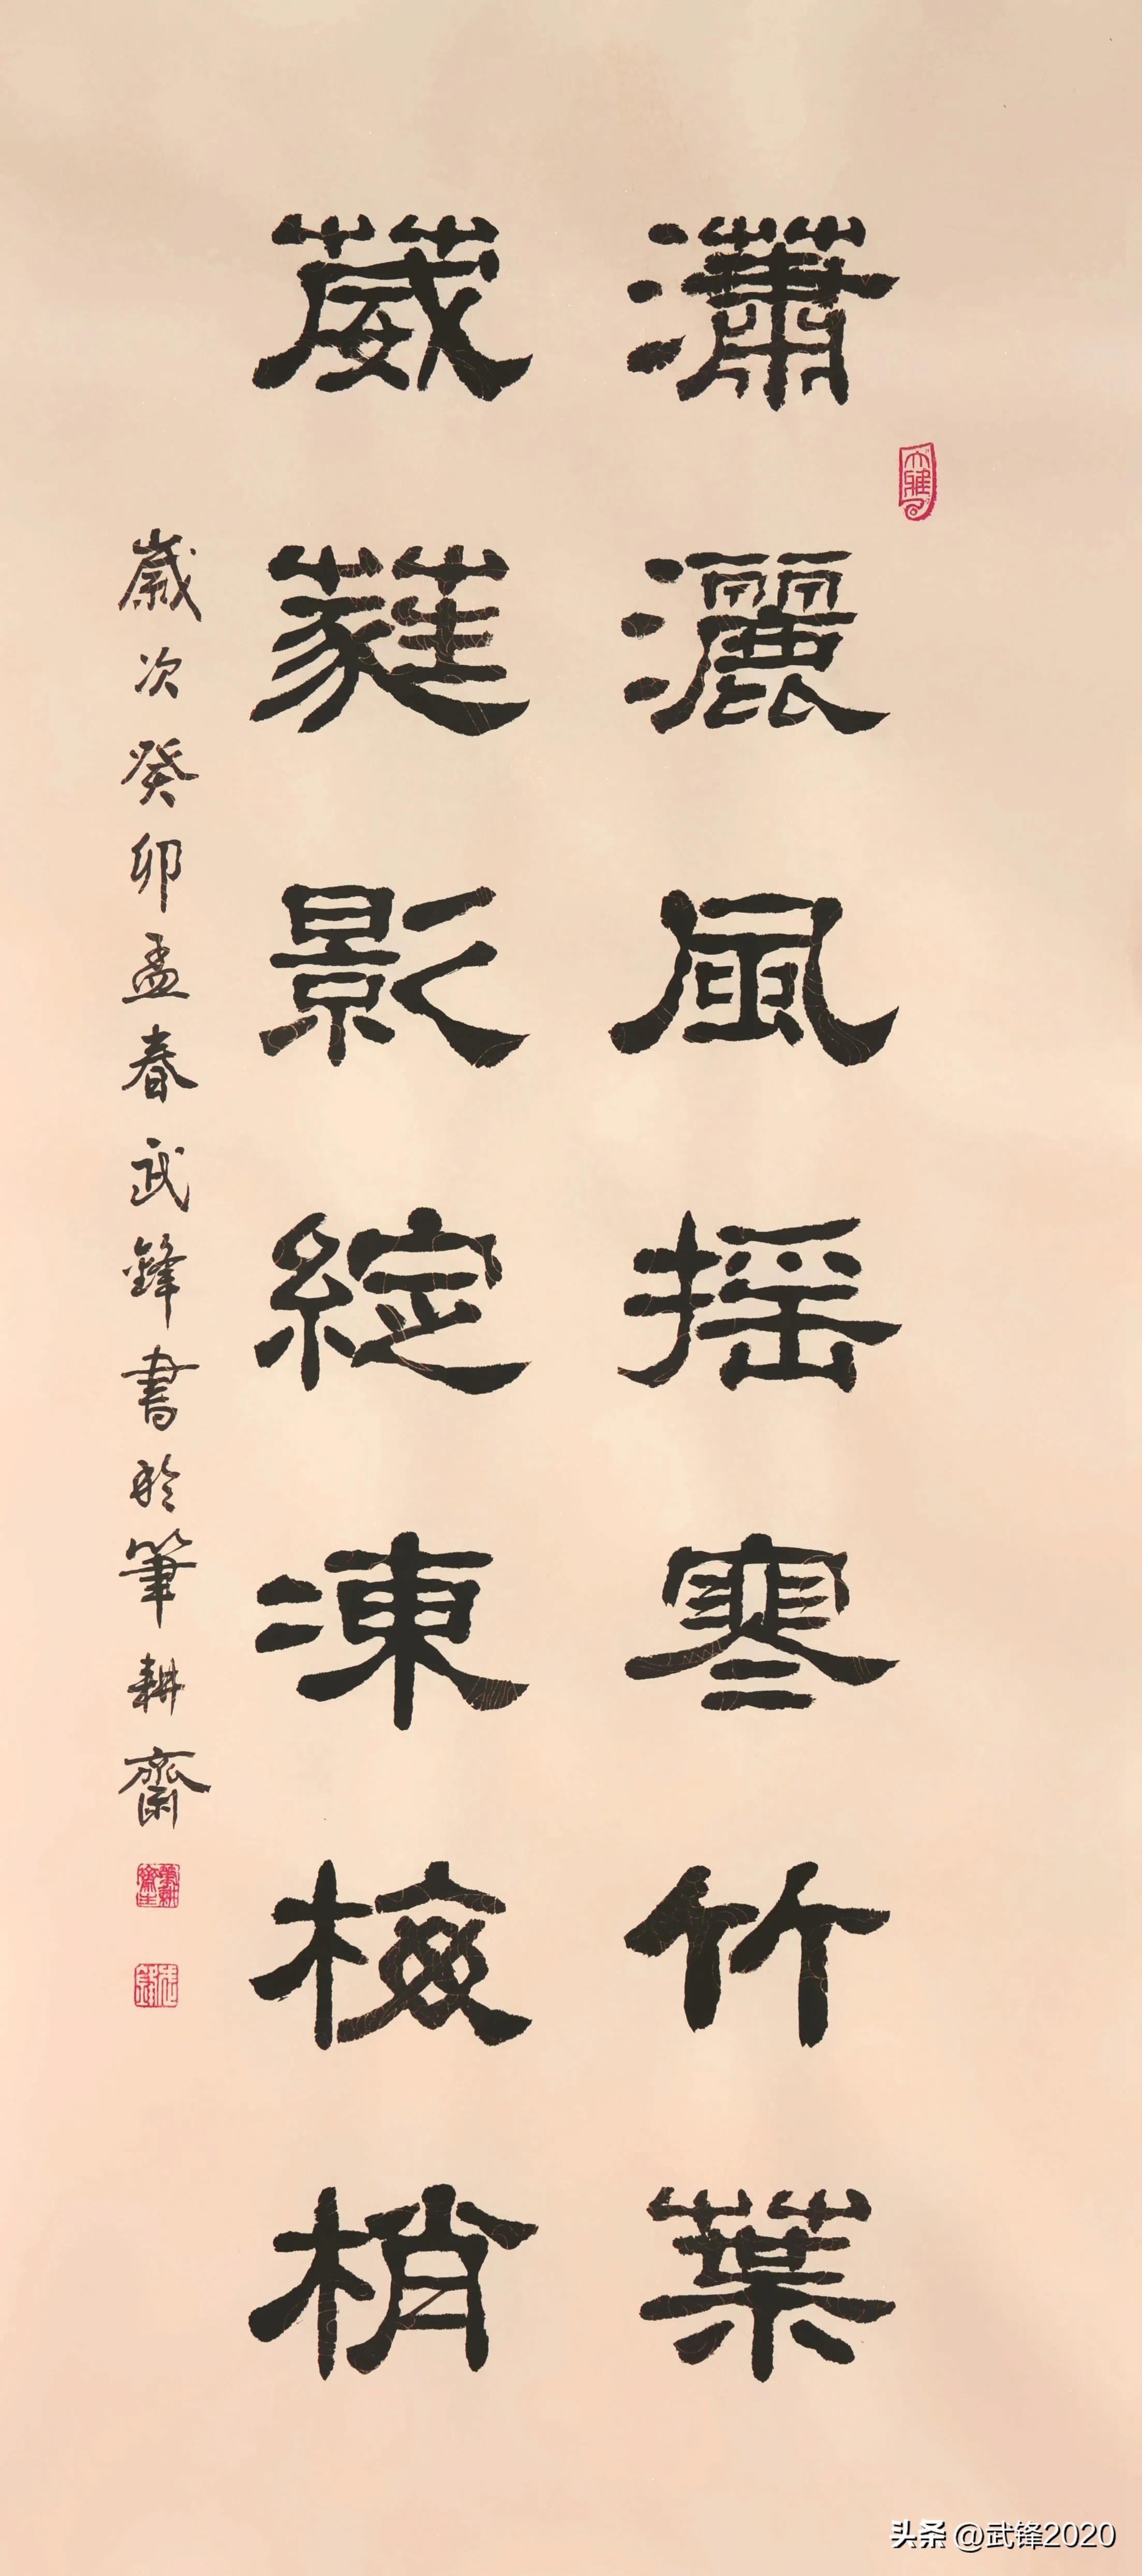 瀟灑風摇寒竹葉
葳蕤影綻凍梅梢
歲次癸卯孟春武鋒書於筆耕齋
大雅
头条 @武锋2020